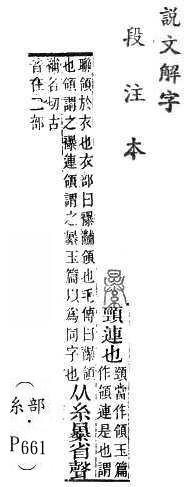 說文解字
段注本
頸連也
頸當作領玉篇
作領連是也謂
聯領於衣也衣部曰襮黼領也毛傳曰襮領
也領謂之襮連領謂之玉篇以為同字也
从糸暴省聲
補各切古
音在二部
(糸部·P661)